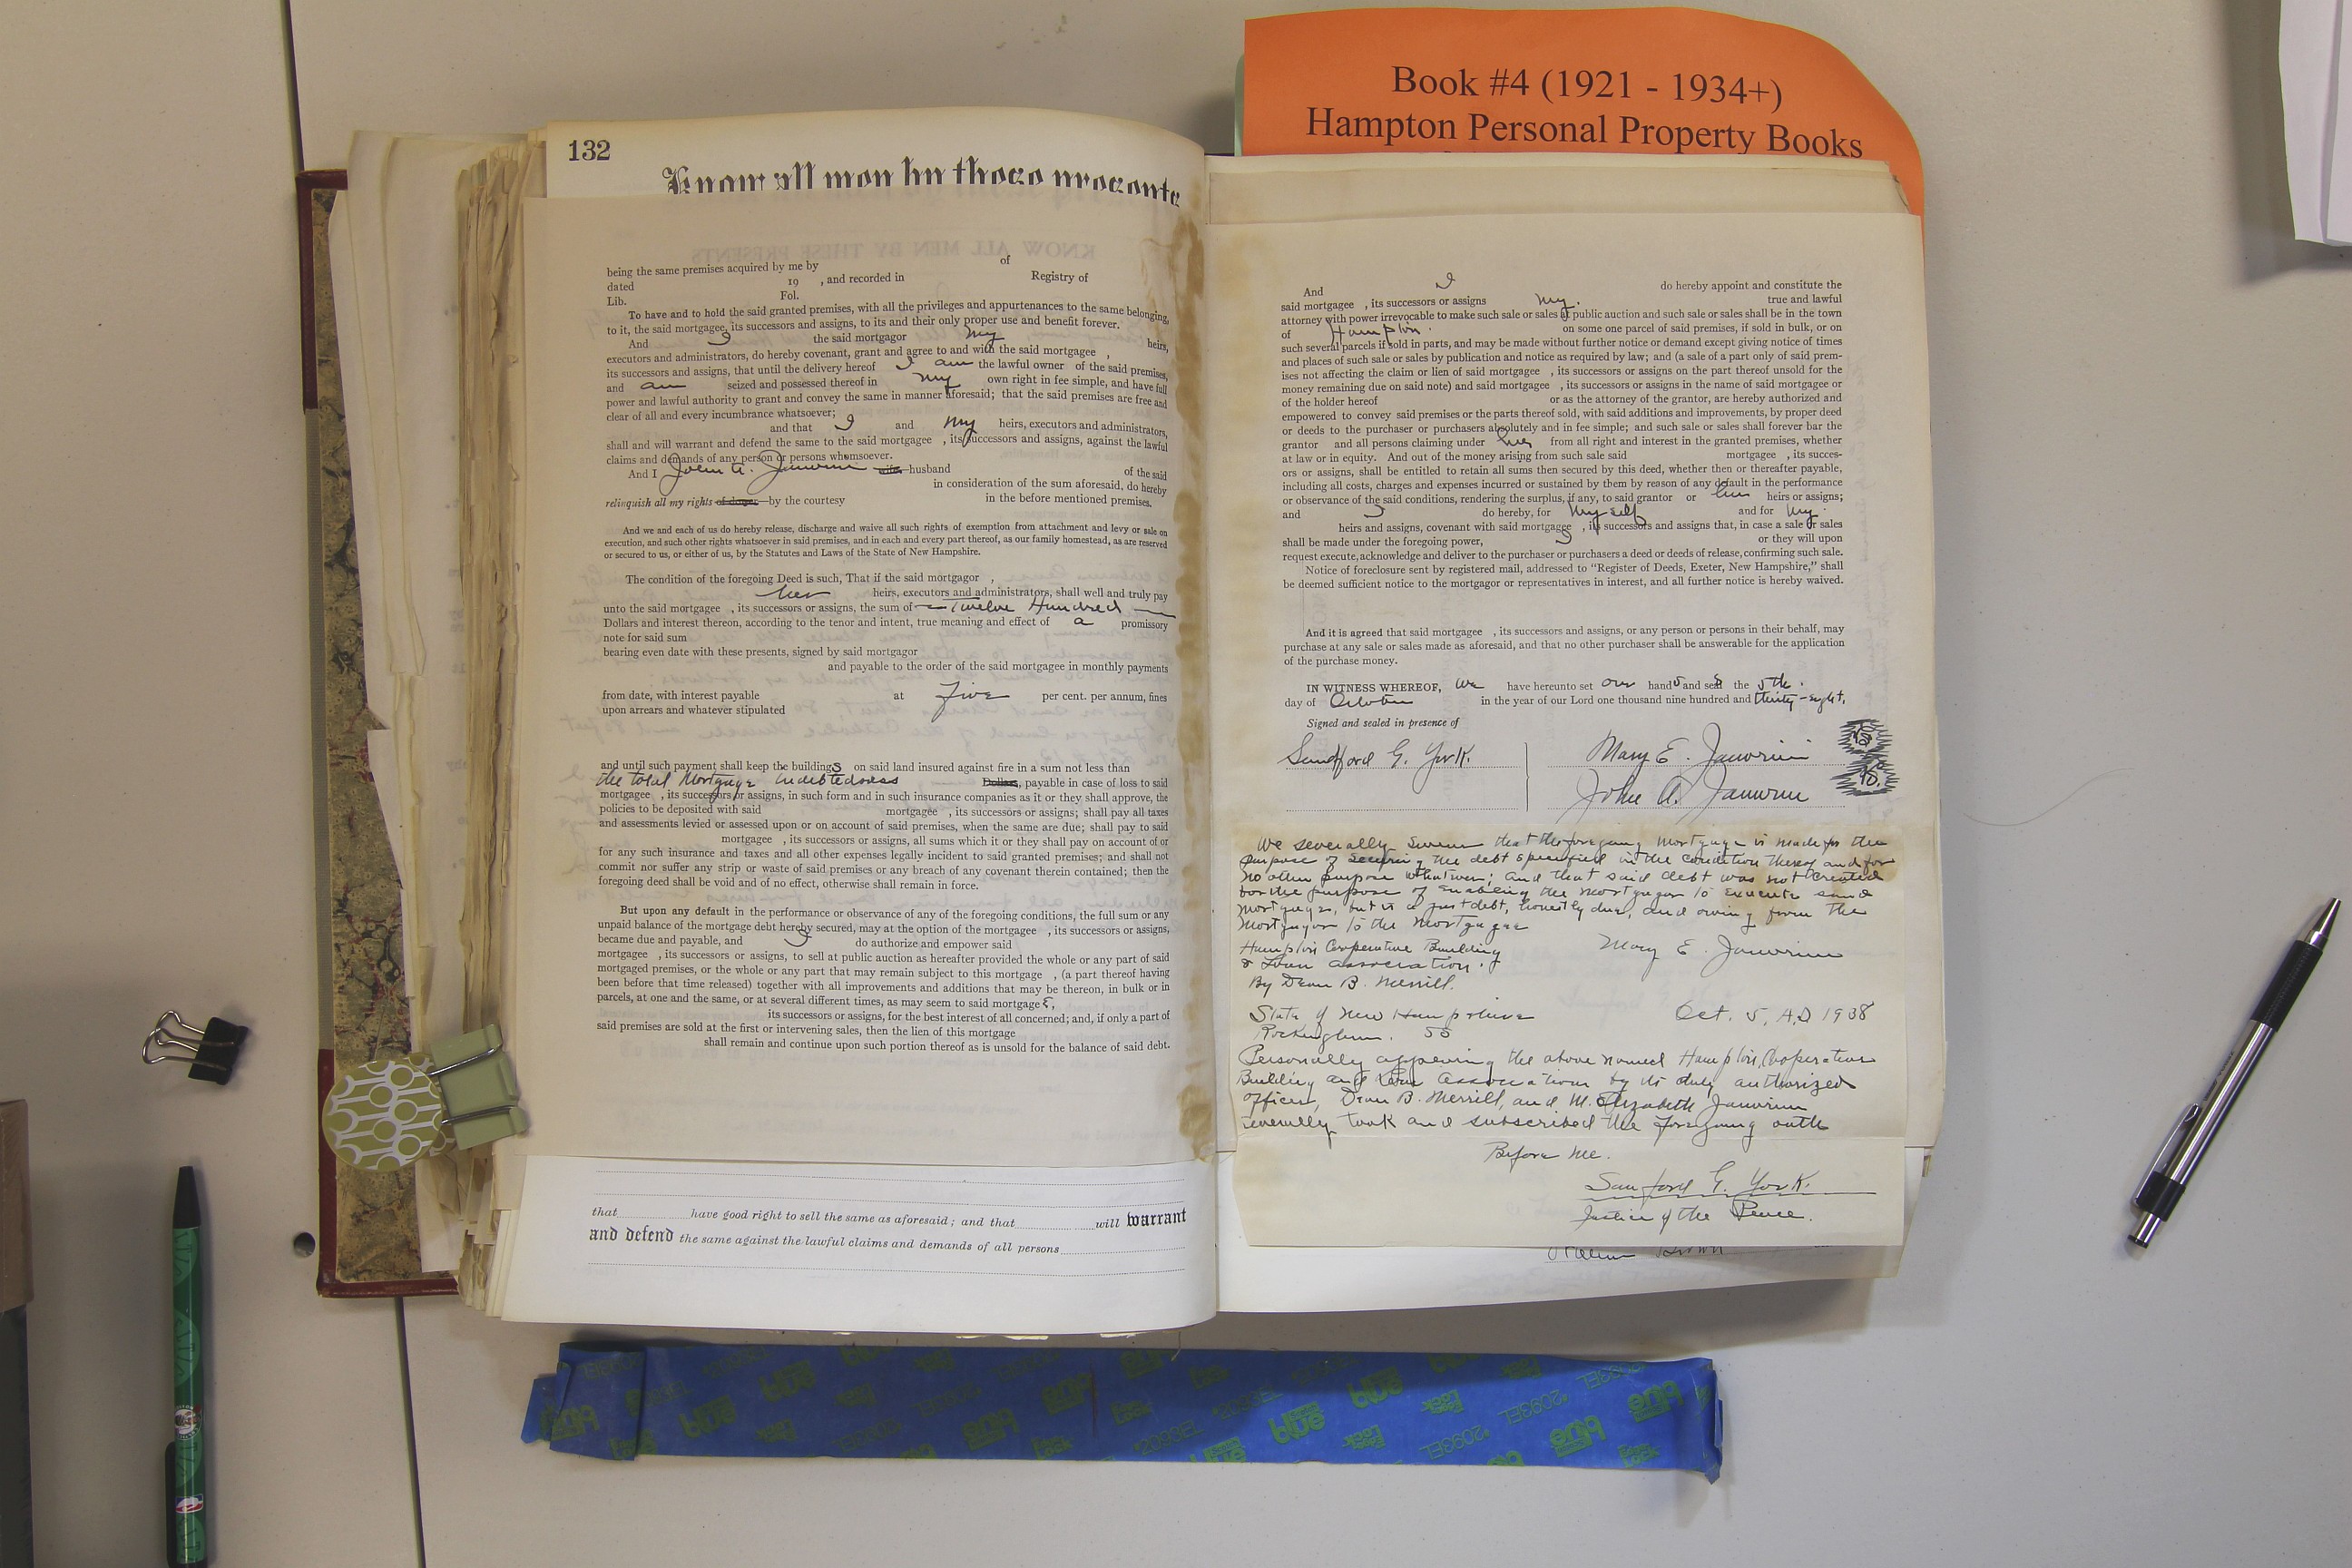 Book #4 (1921 - 1934+)
Hampton Personal Property Books
132
Know all men by these presents
KNOW ALL MEN BY THESE PRESENTS
being the same premises acquired by me by of
dated 19 , and recorded in Registry of
Lib. Fol.
To have and to hold the said granted premises, with all the privileges and appurtenances to the same belonging,
to it, the said mortgagee, its successors and assigns, to its and their only proper use and benefit forever.
And I the said mortgagor my heirs,
executors and administrators, do hereby covenant, grant and agree to and with the said mortgagee ,
its successors and assigns, that until the delivery hereof I am the lawful owner of the said premises,
and am seized and possessed thereof in my own right in fee simple, and have full
power and lawful authority to grant and convey the same in manner aforesaid; that the said premises are free and
clear of all and every incumbrance whatsoever;
and that I and my heirs, executors and administrators,
shall and will warrant and defend the same to the said mortgagee , its successors and assigns, against the lawful
claims and demands of any person or persons whomsoever.
And I John A. Janvrin wife husband of the said
in consideration of the sum aforesaid, do hereby
relinquish all my rights of dower by the courtesy in the before mentioned premises.
And we and each of us do hereby release, discharge and waive all such rights of exemption from attachment and levy or sale on
execution, and such other rights whatsoever in said premises, and in each and every part thereof, as our family homestead, as are reserved
or secured to us, or either of us, by the Statutes and Laws of the State of New Hampshire.
The condition of the foregoing Deed is such, That if the said mortgagor ,
her heirs, executors and administrators, shall well and truly pay
unto the said mortgagee , its successors or assigns, the sum of — Twelve Hundred —
Dollars and interest thereon, according to the tenor and intent, true meaning and effect of a promissory
note for said sum
bearing even date with these presents, signed by said mortgagor
and payable to the order of the said mortgagee in monthly payments
from date, with interest payable at Five per cent. per annum, fines
upon arrears and whatever stipulated
and until such payment shall keep the buildings on said land insured against fire in a sum not less than
the total Mortgage indebtedness Dollars, payable in case of loss to said
mortgagee , its successors or assigns, in such form and in such insurance companies as it or they shall approve, the
policies to be deposited with said mortgagee , its successors or assigns; shall pay all taxes
and assessments levied or assessed upon or on account of said premises, when the same are due; shall pay to said
mortgagee , its successors or assigns, all sums which it or they shall pay on account of or
for any such insurance and taxes and all other expenses legally incident to said granted premises; and shall not
commit nor suffer any strip or waste of said premises or any breach of any covenant therein contained; then the
foregoing deed shall be void and of no effect, otherwise shall remain in force.
But upon any default in the performance or observance of any of the foregoing conditions, the full sum or any
unpaid balance of the mortgage debt hereby secured, may at the option of the mortgagee , its successors or assigns,
became due and payable, and I do authorize and empower said
mortgagee , its successors or assigns, to sell at public auction as hereafter provided the whole or any part of said
mortgaged premises, or the whole or any part that may remain subject to this mortgage , (a part thereof having
been before that time released) together with all improvements and additions that may be thereon, in bulk or in
parcels, at one and the same, or at several different times, as may seem to said mortgagee,
its successors or assigns, for the best interest of all concerned; and, if only a part of
said premises are sold at the first or intervening sales, then the lien of this mortgage
shall remain and continue upon such portion thereof as is unsold for the balance of said debt.
that have good right to sell the same as aforesaid; and that will warrant
and defend the same against the lawful claims and demands of all persons
And I do hereby appoint and constitute the
said mortgagee , its successors or assigns my. true and lawful
attorney with power irrevocable to make such sale or sales of public auction and such sale or sales shall be in the town
of Hampton. on some one parcel of said premises, if sold in bulk, or on
such several parcels if sold in parts, and may be made without further notice or demand except giving notice of times
and places of such sale or sales by publication and notice as required by law; and (a sale of a part only of said prem-
ises not affecting the claim or lien of said mortgagee , its successors or assigns on the part thereof unsold for the
money remaining due on said note) and said mortgagee , its successors or assigns in the name of said mortgagee or
of the holder hereof or as the attorney of the grantor, are hereby authorized and
empowered to convey said premises or the parts thereof sold, with said additions and improvements, by proper deed
or deeds to the purchaser or purchasers absolutely and in fee simple; and such sale or sales shall forever bar the
grantor and all persons claiming under her from all right and interest in the granted premises, whether
at law or in equity. And out of the money arising from such sale said mortgagee , its succes-
ors or assigns, shall be entitled to retain all sums then secured by this deed, whether then or thereafter payable,
including all costs, charges and expenses incurred or sustained by them by reason of any default in the performance
or observance of the said conditions, rendering the surplus, if any, to said grantor or her heirs or assigns;
and I do hereby, for myself and for my.
heirs and assigns, covenant with said mortgagee , its successors and assigns that, in case a sale or sales
shall be made under the foregoing power, I or they will upon
request execute, acknowledge and deliver to the purchaser or purchasers a deed or deeds of release, confirming such sale.
Notice of foreclosure sent by registered mail, addressed to "Register of Deeds, Exeter, New Hampshire," shall
be deemed sufficient notice to the mortgagor or representatives in interest, and all further notice is hereby waived.
And it is agreed that said mortgagee , its successors and assigns, or any person or persons in their behalf, may
purchase at any sale or sales made as aforesaid, and that no other purchaser shall be answerable for the application
of the purchase money.
IN WITNESS WHEREOF, we have hereunto set our hands and seals the 5th.
day of October in the year of our Lord one thousand nine hundred and thirty-eight.
Signed and sealed in presence of
Sandford G. York. Mary E. Janvrin
John A. Janvrin
We severally swear that the foregoing mortgage is made for the
purpose of securing the debt specified in the condition thereof and for
no other purpose whatever; and that said debt was not created
for the purpose of enabling the mortgagor to execute said
mortgage, but is a just debt, honestly due, and owing from the
mortgagor to the mortgagee
Hampton Cooperative Building Mary E. Janvrin
& Loan association.
By Dean B. Merrill.
State of New Hampshire Oct. 5, A.D 1938
Rockingham. SS
Personally appearing the above named Hampton Cooperative
Building and Loan Association by its duly authorized
officer, Dean B. Merrill, and M. Elizabeth Janvrin
severally took and subscribed the foregoing oath
Before me.
Sanford G. York.
Justice of the Peace.
Brown